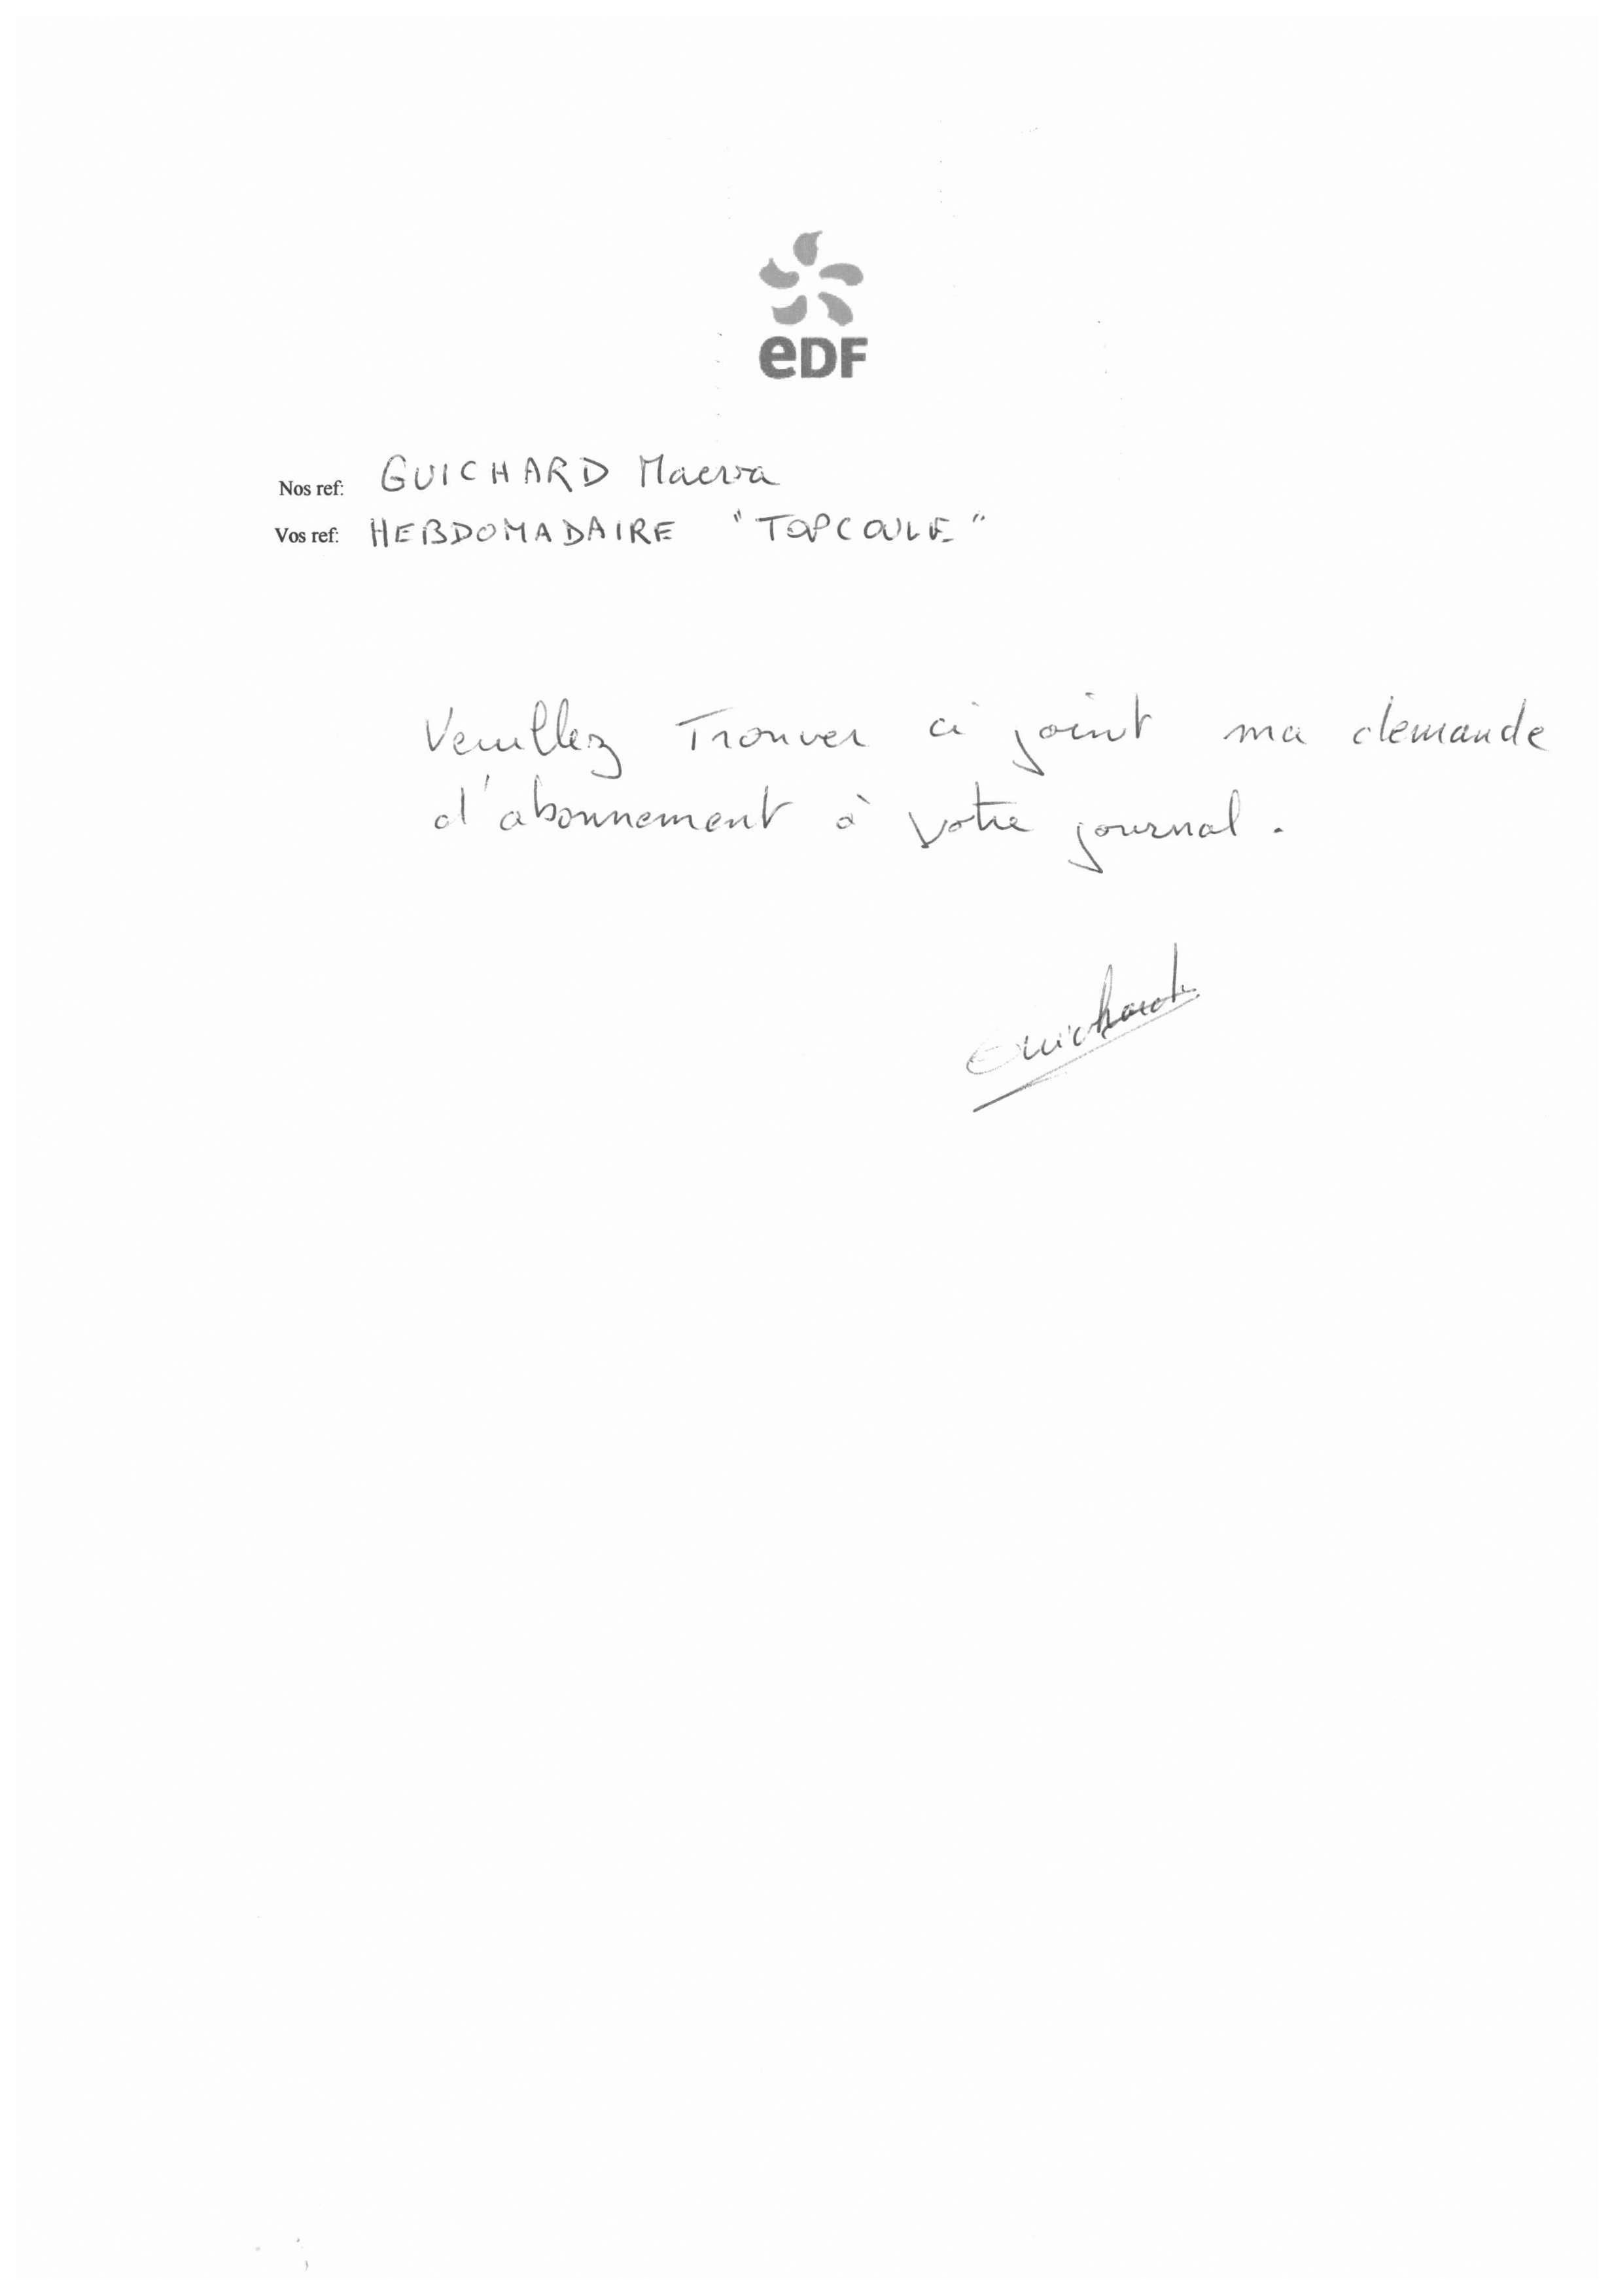 eDF
Nos ref: GUICHARD Maeva
Vos ref: HEBDOMADAIRE "TOPCOULE"
Veuillez Trouver ci joint ma demande
d'abonnement à votre journal.
Guichard